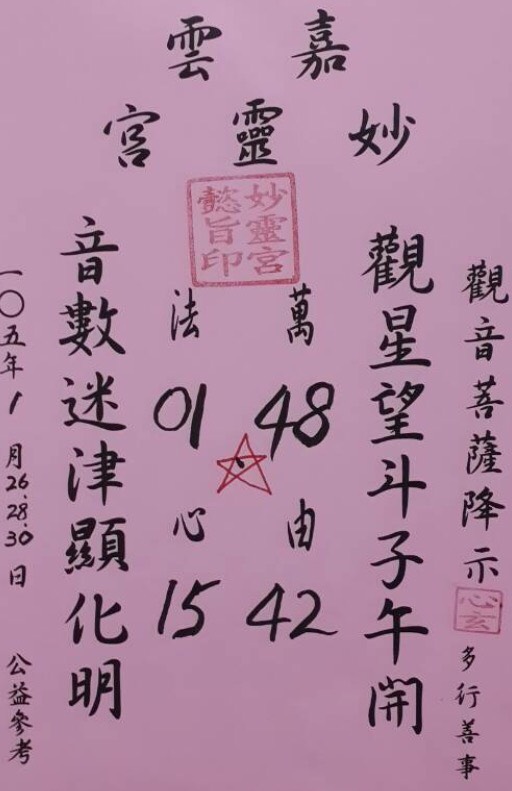 嘉雲
妙靈宮
妙靈宮
懿旨印
觀音菩薩降示
心玄
多行善事
觀星望斗子午開
萬
48
由
42
法
01
心
15
音數迷津顯化明
一〇五年1月26.28.30日
公益參考